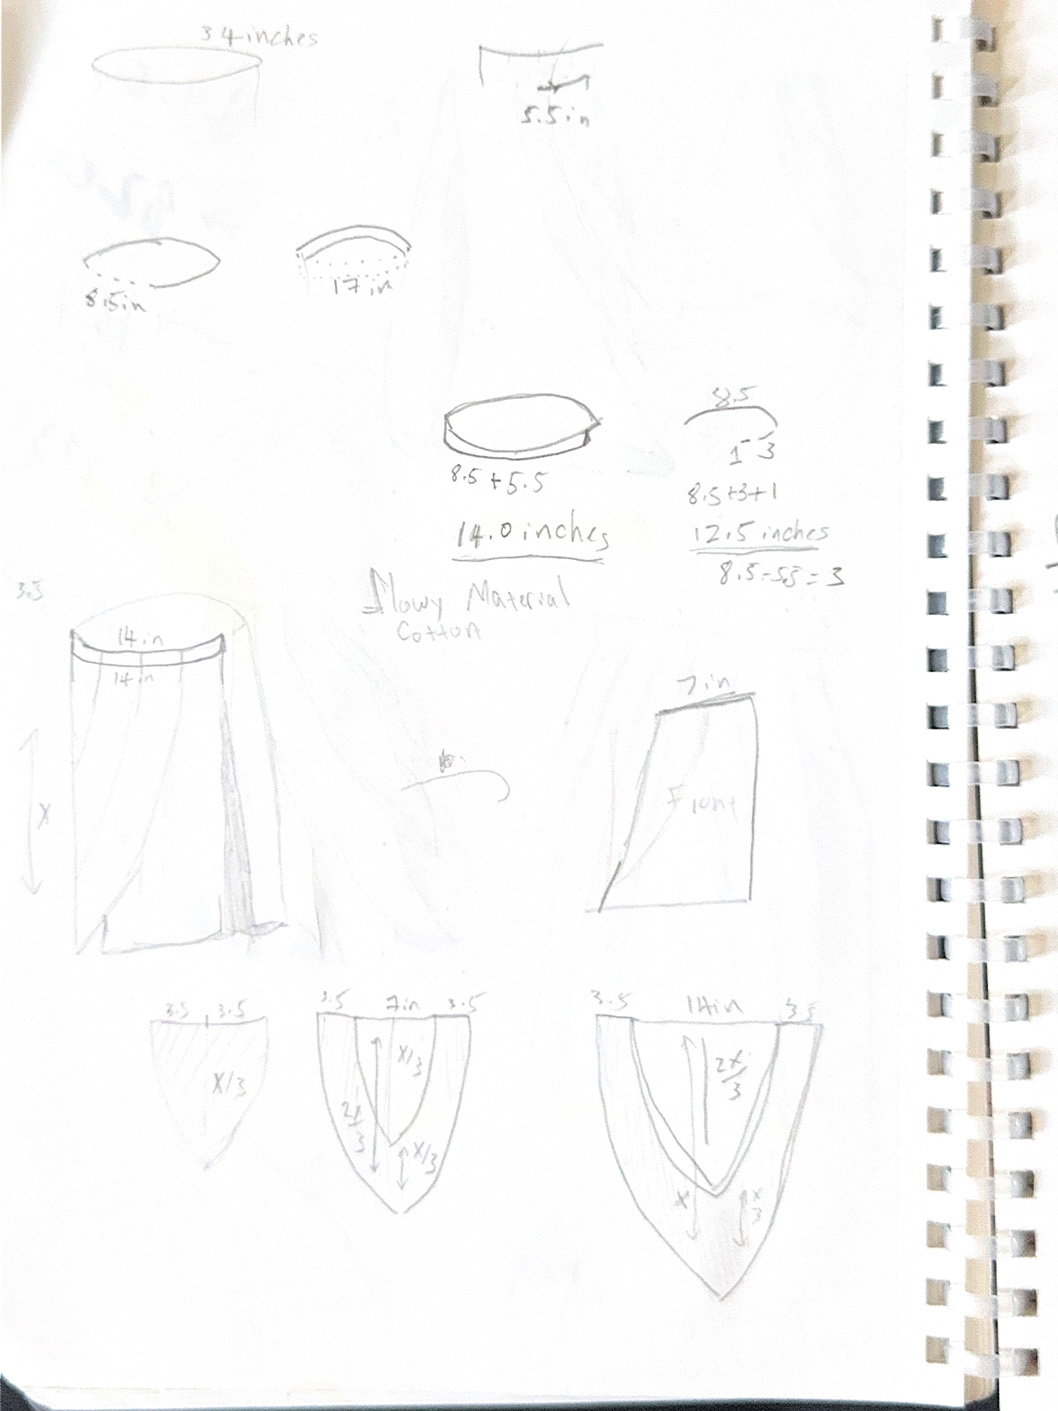 34 inches
5.5in
8.5in
17 in
8.5
1 - 3
8.5 + 5.5
8.5+3+1
14.0 inches
12.5 inches
8.5-5.5 = 3
flowy Material
Cotton
3.5
14 in
14 in
7 in
X
Front
3.5 3.5
X/3
3.5 7in 3.5
X/3
2x/3
X/3
3.5 14in 3.5
2x/3
x
x/3